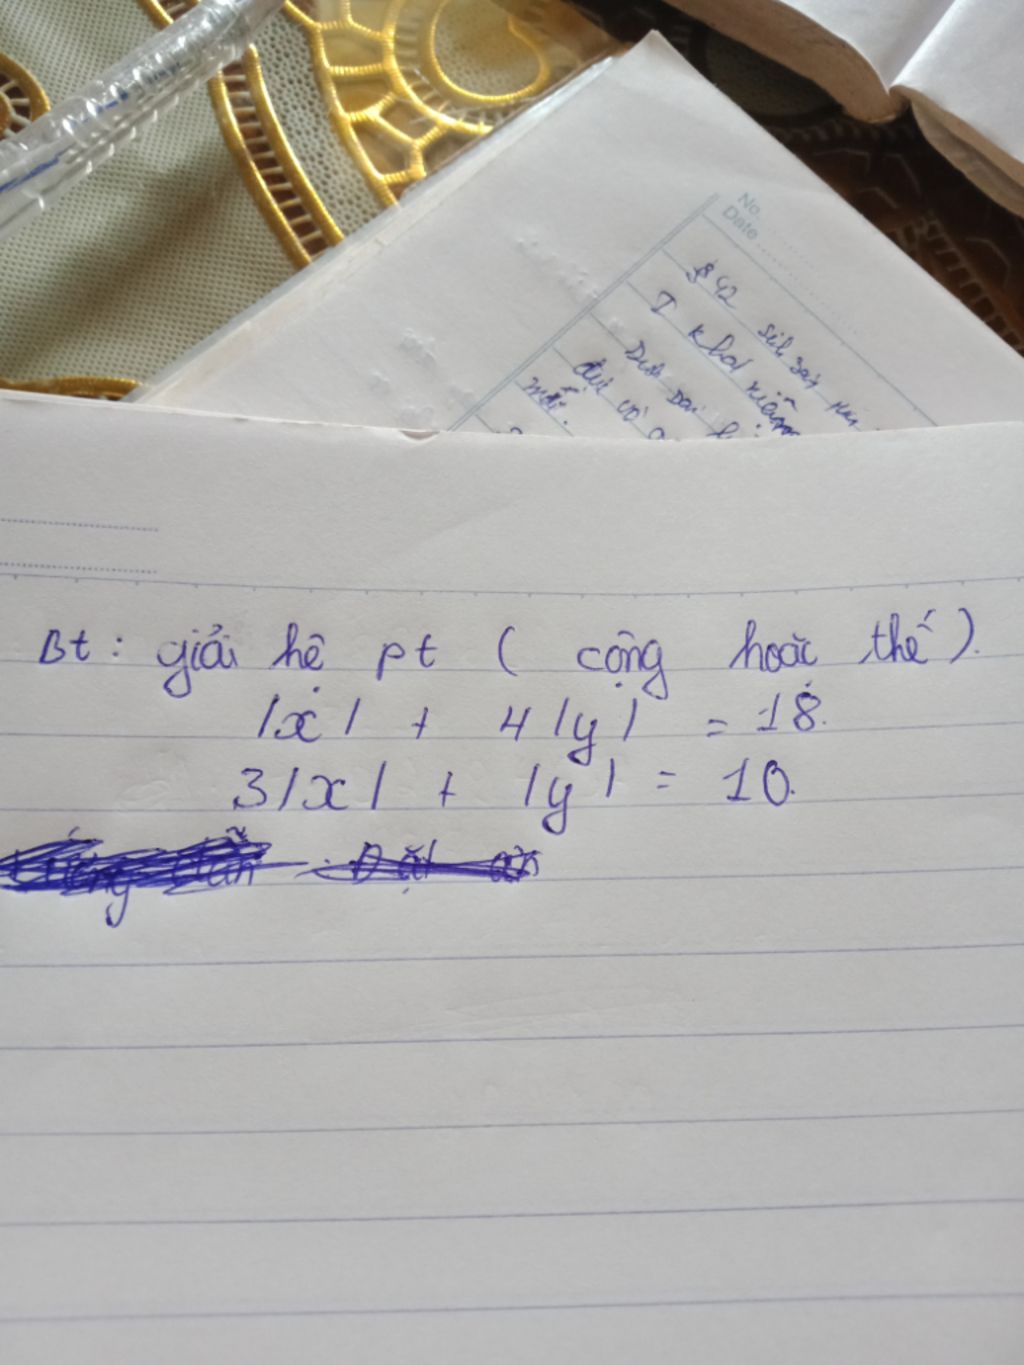 No.
Date
§ 42
I khái niệm
mới.
Bt : giải hệ pt ( cộng hoặc thế ).
|x| + 4 |y| = 18.
3|x| + |y| = 10.